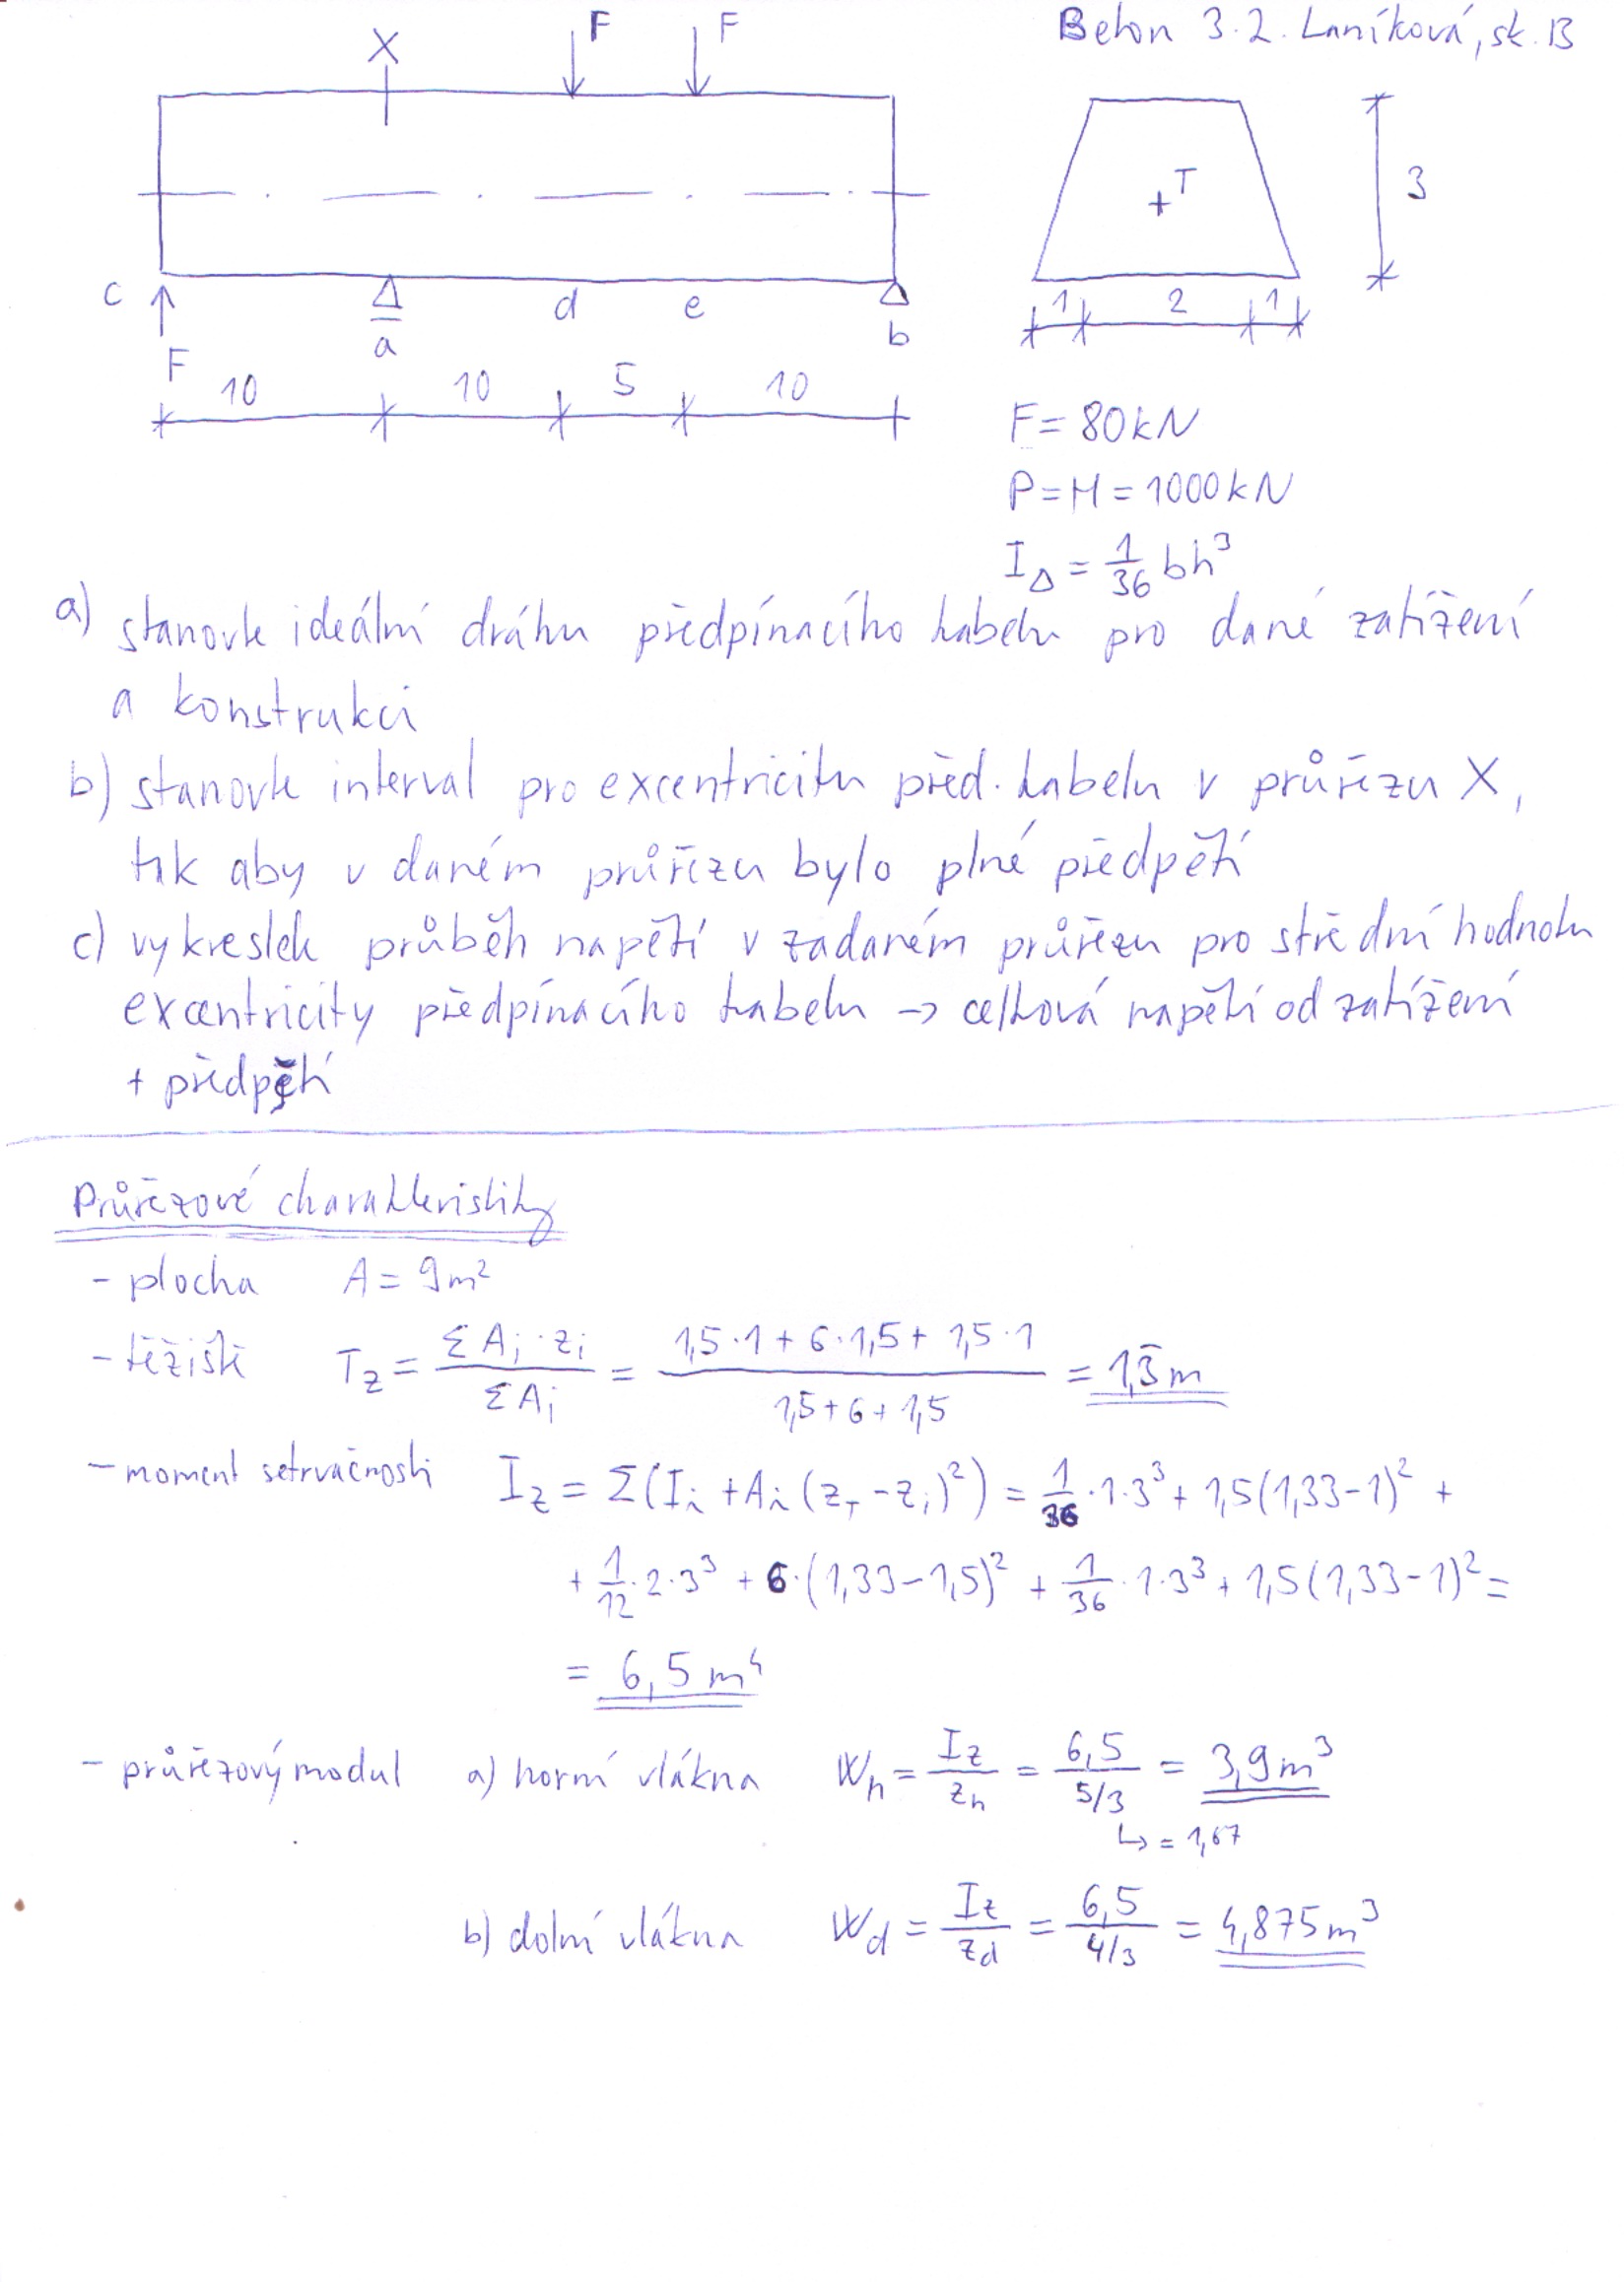 Beton 3.2. Laníková, sk. B
X F F
T
3
c a d e b
F
1 2 1
10 10 5 10
F = 80 kN
P = H = 1000 kN
I△ = 1/36 bh³
a) stanovte ideální dráhu předpínacího kabelu pro dané zatížení
a konstrukci
b) stanovte interval pro excentricitu před. kabelu v průřezu X,
tak aby v daném průřezu bylo plné předpětí
c) vykreslete průběh napětí v zadaném průřezu pro střední hodnotu
excentricity předpínacího kabelu → celková napětí od zatížení
+ předpětí
Průřezové charakteristiky
- plocha A = 9m²
- těžiště Tz = ΣAi·zi / ΣAi = (1,5·1 + 6·1,5 + 1,5·1) / (1,5 + 6 + 1,5) = 1,3̄ m
- moment setrvačnosti Iz = Σ(Ii + Ai(zT - zi)²) = 1/36·1·3³ + 1,5(1,33-1)² +
+ 1/12·2·3³ + 6·(1,33-1,5)² + 1/36·1·3³ + 1,5(1,33-1)² =
= 6,5 m⁴
- průřezový modul a) horní vlákna Wh = Iz/zh = 6,5/(5/3) = 3,9 m³
↳ = 1,67
b) dolní vlákna Wd = Iz/zd = 6,5/(4/3) = 4,875 m³